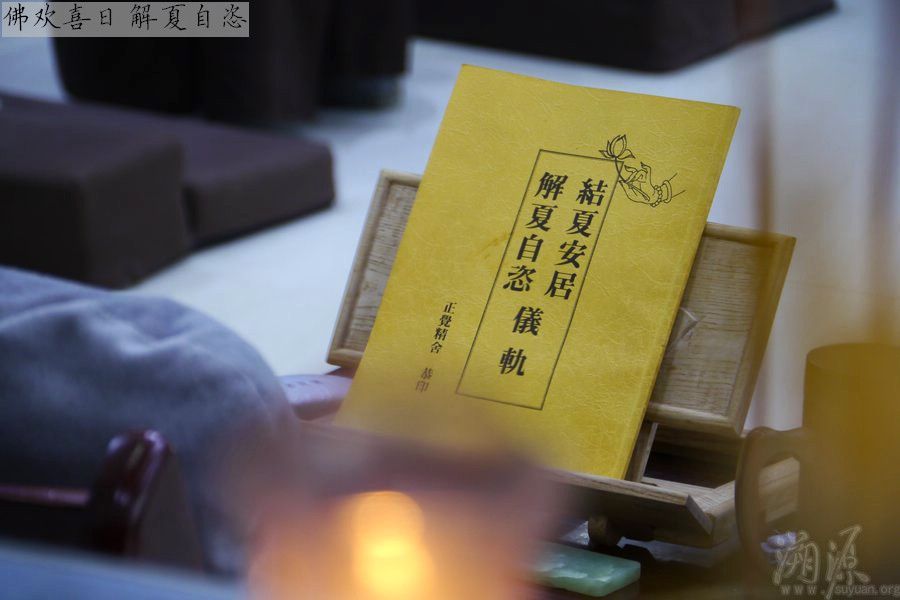 佛欢喜日 解夏自恣
結夏安居
解夏自恣
儀軌
正覺精舍 恭印
溯源
www.suyuan.org